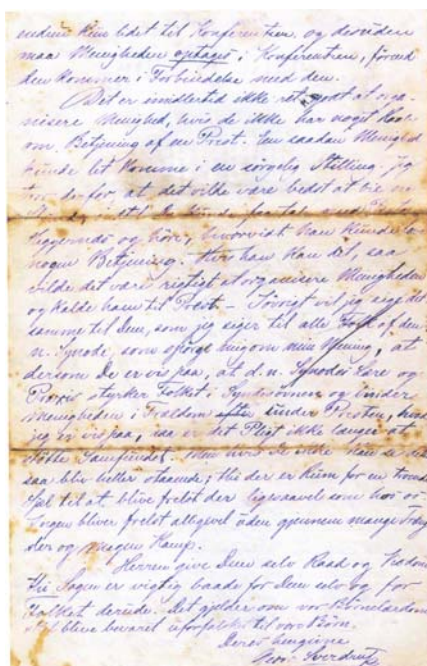 endnu kun lidet til Konferentsen og desuden
maa Menigheden optages i Konferentsen, førend
den kommer i Forbindelse med den.
Det er imidlertid ikke ret godt at orga-
nisere Menighed, hvis de ikke har noget Haab
om Betjening af en Prest. En saadan Menighed
kunde let komme i en sørgelig Stilling. Jeg
derfor at det vilde være bedst at bie
faa tale med
og høre, hvorvidt han kunde
nogen Betjening. Hvis han kan det, saa
vilde det være rigtigt at organisere Menigheden
og kalde ham til Prest. — Iøvrigt vil jeg sige det
samme til Dem, som jeg siger til alle Folk af den
n. Synode, som spørge mig om min Mening, at
dersom De er vis paa, at d. n. Synodes Lære og
Praxis styrker Folket i Syndesøvnen og binder
Menigheden i Trældom under Presten, hvad
jeg er vis paa, saa er det Pligt ikke længer at
støtte Samfundet. Men hvis De endnu ikke
saa bliv heller staaende; thi der er Rum for en
Sjæl til at blive frelst der ligesaavel som hos os.
Ingen bliver frelst alligevel uden gjennem mange
og megen Kamp.
Herren give Dem selv Raad og Visdom
thi Sagen er vigtig baade for Dem selv og for
Folket derude. Det gjelder om vor Børnelærdom
skal blive bevaret uforfalsket til vore Børn.
Deres hengivne
Sverdrup